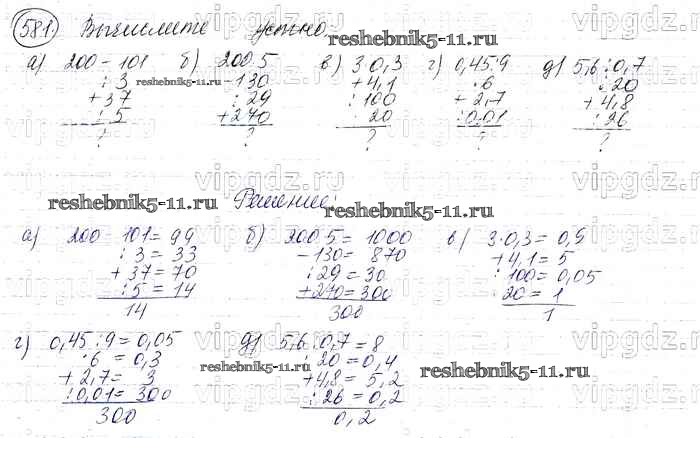 581. Вычислите устно:
а) 200 - 101 б) 200·5 в) 3·0,3 г) 0,45:9 д) 5,6:0,7
:3 -130 +4,1 ·6 :20
+37 :29 :100 +2,7 +4,8
:5 +270 ·20 :0,01 :26
? ? ? ? ?
Решение:
а) 200 - 101 = 99 б) 200·5 = 1000 в) 3·0,3 = 0,9
:3 = 33 -130 = 870 +4,1 = 5
+37 = 70 :29 = 30 :100 = 0,05
:5 = 14 +270 = 300 ·20 = 1
14 300 1
г) 0,45:9 = 0,05 д) 5,6:0,7 = 8
·6 = 0,3 :20 = 0,4
+2,7 = 3 +4,8 = 5,2
:0,01 = 300 :26 = 0,2
300 0,2
reshebnik5-11.ru
reshebnik5-11.ru
reshebnik5-11.ru
reshebnik5-11.ru
reshebnik5-11.ru
reshebnik5-11.ru
vipgdz.ru